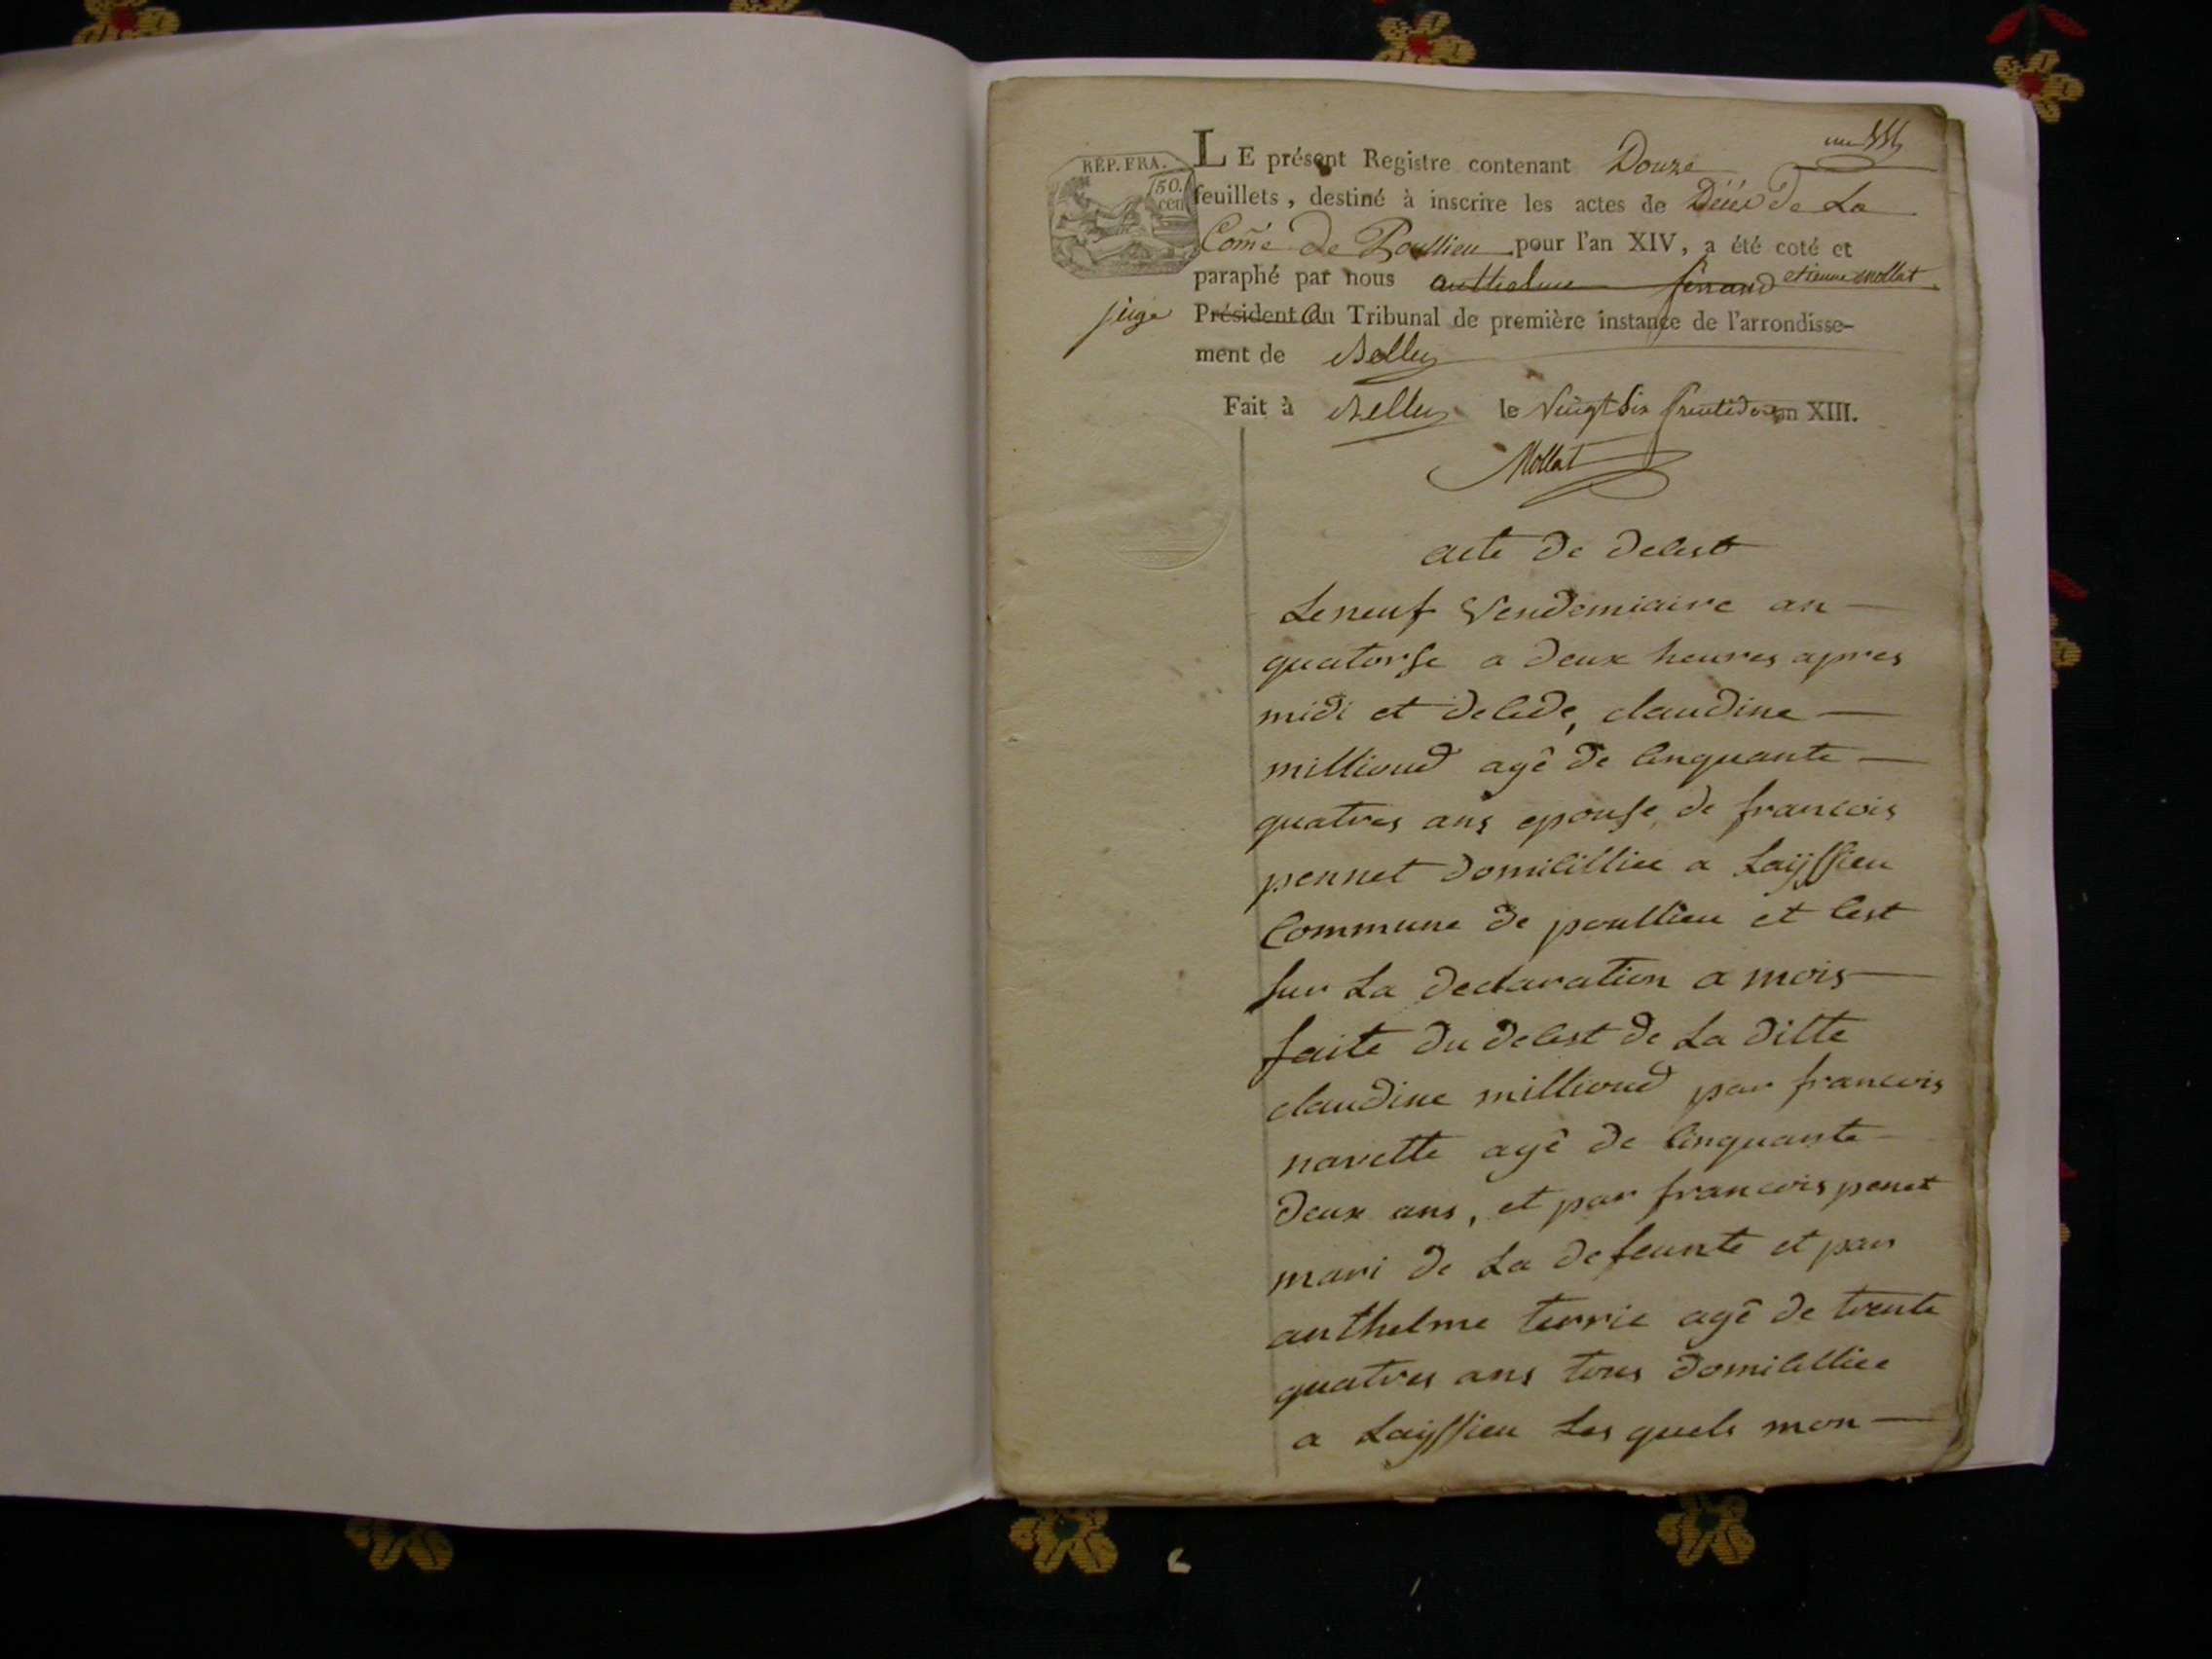 RÉP. FRA.
50.
cen
un
LE présent Registre contenant Douze
feuillets, destiné à inscrire les actes de Décès de La
Comē de Poullieu pour l'an XIV, a été coté et
paraphé par nous anthelme ferrand etienne mollat
juge Président du Tribunal de première instance de l'arrondisse-
ment de Belley
Fait à Belley le vingt six fructidor an XIII.
Mollat
acte de decest
Le neuf Vendemiaire an
quatorse a deux heures apres
midi et decede, claudine
millioud agê de cinquante
quatres ans epouse de francois
pennet domicilliee a Laÿssieu
Commune de poullieu et cest
sur La declaration a mois
faite du decest de La ditte
claudine millioud par francois
navette agê de cinquante
deux ans, et par francois penet
mari de La defeunte et par
anthelme terrie agê de trente
quatres ans tous domicilliee
a Layssieu Les quels mon